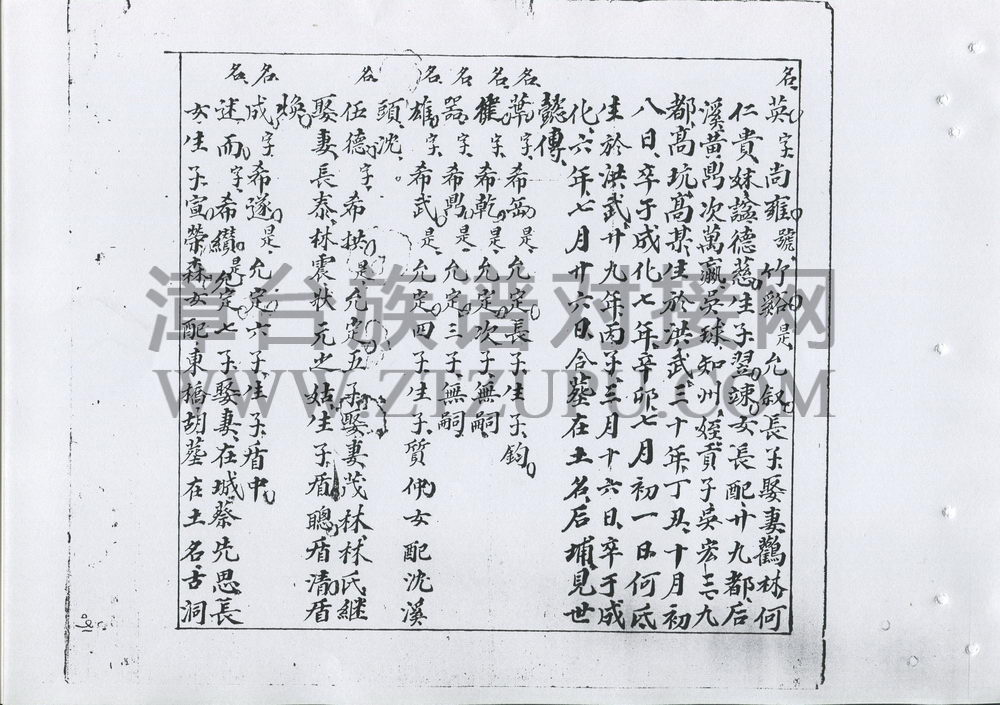 名英字尚雍號竹谿是允叙長子娶妻鸛林何
仁貴妹諡德慈生子翌竦女長配廿九都后
溪黃鼎次萬瀛吳球知州姪貢子吳宏三九
都高坑高某生於洪武三十年丁丑十月初
八日卒于成化七年辛卯七月初一日何氏
生於洪武廿九年丙子三月十六日卒于成
化六年七月廿六日合葬在土名后埔見世
懿傳
名華字希缶是允定長子生子鈞
名權字希乾是允定次子無嗣
名器字希鼎是允定三子無嗣
名雄字希武是允定四子生子質仲女配沈溪
頭沈
名伍德字希拱是允定五子娶妻茂林林氏継
娶妻長泰林震狀元之姑生子盾聰盾清盾
煥
名成字希遂是允定六子生子盾中
名述而字希纘是允定七子娶妻在城蔡先思長
女生子宣榮森女配東橋胡葬在土名古洞
漳台族谱对接网
WWW.ZTZUPU.COM